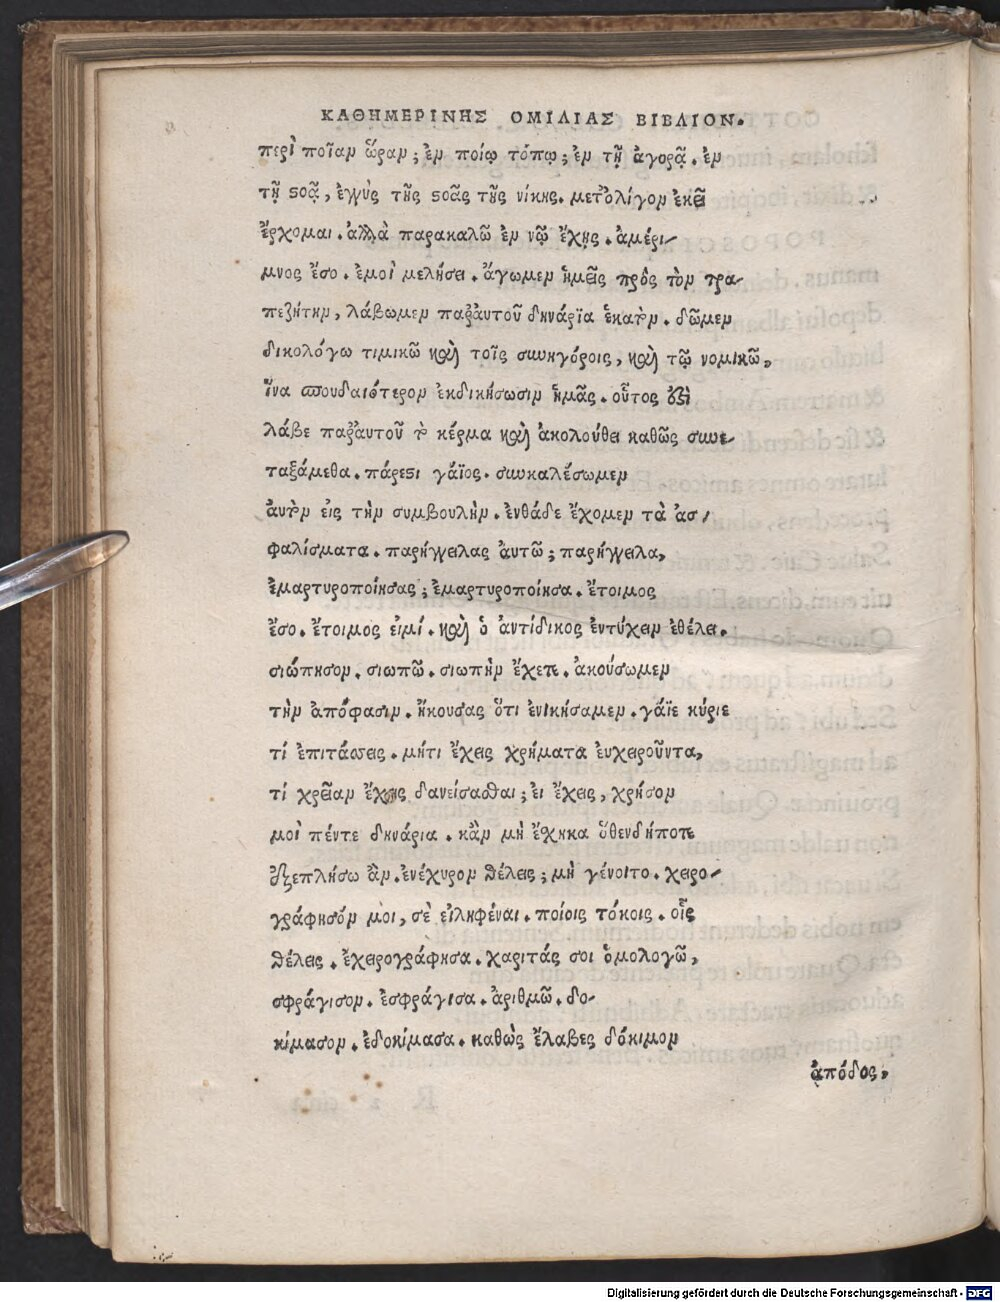 ΚΑΘΗΜΕΡΙΝΗΣ ΟΜΙΛΙΑΣ ΒΙΒΛΙΟΝ.
περὶ ποῖαν ὥραν; ἐν ποίῳ τόπῳ; ἐν τῇ ἀγορᾷ. ἐν
τῇ ϛοᾷ, ἐγγὺς τῆς ϛοᾶς τῆς νίκης. μετ᾽ολίγον ἐκεῖ
ἔρχομαι. ἀλλὰ παρακαλῶ ἐν νῷ ἔχῃς. ἀμέρι-
μνος ἔσο. ἐμοὶ μελήσει. ἄγωμεν ἡμεῖς πρὸς τὸν τρα-
πεζήτην, λάβωμεν παρ᾽αυτοῦ δηνάρϊα ἑκατὸν. δῶμεν
δικολόγω τιμικῶ καὶ τοῖς συνηγόροις, καὶ τῷ νομικῶ,
ἵνα σπουδαιότερον ἐκδικήσωσιν ἡμᾶς. οὗτος ὅξὶ
λάβε παρ᾽αυτοῦ τὸ κέρμα καὶ ἀκολούθει καθῶς συνε-
ταξάμεθα. πάρεϛι γάϊος. συνκαλέσωμεν
ἀυτὸν εἰς τὴν συμβουλὴν. ἐνθάδε ἔχομεν τὰ ἀσ-
φαλίσματα. παρήγγειλας ἀυτῶ; παρήγγειλα,
ἐμαρτυροποίησας; ἐμαρτυροποίησα. ἕτοιμος
ἔσο. ἕτοιμος εἰμί. καὶ ὁ ἀντίδικος ἐντύχειν ἐθέλει.
σιώπησον. σιωπῶ. σιωπὴν ἔχετε. ἀκούσωμεν
τὴν απόφασιν. ἤκουσας ὅτι ἐνικήσαμεν. γάϊε κύριε
τί ἐπιτάσσεις. μήτι ἔχεις χρήματα ἐυχεροῦντα,
τί χρεῖαν ἔχεις δανείσασθαι; ἐι ἔχεις, χρῆσον
μοὶ πέντε δηνάρια. κἂν μὴ ἔχηκα ὅθενδήποτε
ἐξεπλήσω ἂν. ἐνέχυρον θέλεις; μὴ γένοιτο. χειρο-
γράφησόν μοι, σὲ εἰληφέναι. ποίοις τόκοις. οἷς
θέλεις. ἐχειρογράφησα. χαριτάς σοι ὁμολογῶ,
σφράγισον. ἐσφράγισα. ἀριθμῶ. δο-
κίμασον. ἐδοκίμασα. καθὼς ἔλαβες δόκιμον
ἀπόδος,
Digitalisierung gefördert durch die Deutsche Forschungsgemeinschaft - DFG